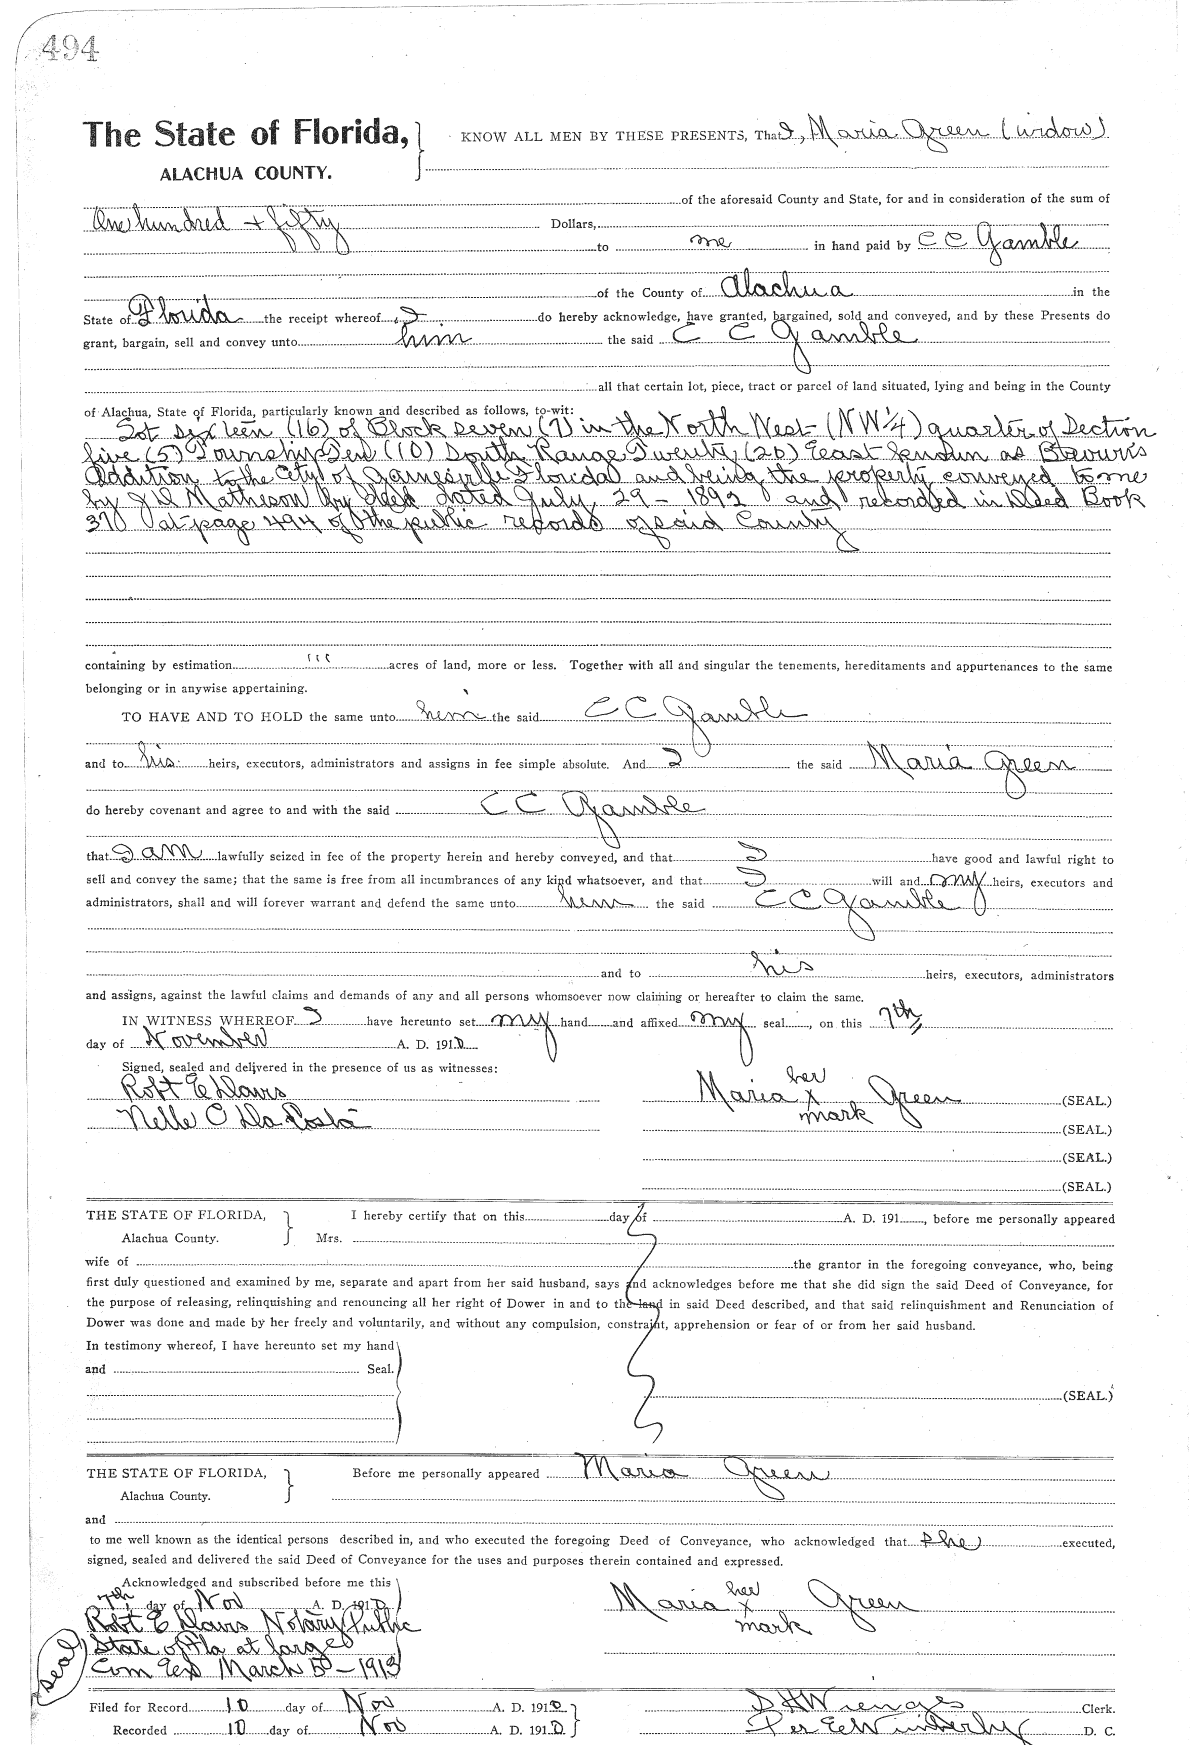 494
The State of Florida, KNOW ALL MEN BY THESE PRESENTS, That I, Maria Green (widow)
ALACHUA COUNTY.
of the aforesaid County and State, for and in consideration of the sum of
One hundred + fifty Dollars,
to me in hand paid by C C Gamble
of the County of Alachua in the
State of Florida the receipt whereof I do hereby acknowledge, have granted, bargained, sold and conveyed, and by these Presents do
grant, bargain, sell and convey unto him the said C C Gamble
all that certain lot, piece, tract or parcel of land situated, lying and being in the County
of Alachua, State of Florida, particularly known and described as follows, to-wit:
Lot sixteen (16) of Block seven (7) in the North West (NW 1/4) quarter of Section
five (5) Township Ten (10) South Range Twenty (20) East known as Brown's
Addition to the City of Gainesville Florida and being the property conveyed to me
by J D Matheson by deed dated July 29 - 1892 and recorded in Deed Book
37 at page 494 of the public records of said County
containing by estimation " ' acres of land, more or less. Together with all and singular the tenements, hereditaments and appurtenances to the same
belonging or in anywise appertaining.
TO HAVE AND TO HOLD the same unto him the said C C Gamble
and to his heirs, executors, administrators and assigns in fee simple absolute. And I the said Maria Green
do hereby covenant and agree to and with the said C C Gamble
that I am lawfully seized in fee of the property herein and hereby conveyed, and that I have good and lawful right to
sell and convey the same; that the same is free from all incumbrances of any kind whatsoever, and that I will and my heirs, executors and
administrators, shall and will forever warrant and defend the same unto him the said C C Gamble
and to his heirs, executors, administrators
and assigns, against the lawful claims and demands of any and all persons whomsoever now claiming or hereafter to claim the same.
IN WITNESS WHEREOF I have hereunto set my hand and affixed my seal, on this 7th
day of November A. D. 1910.
Signed, sealed and delivered in the presence of us as witnesses:
Robt E Davis
Maria her x mark Green (SEAL.)
Nelle C Da Costa
(SEAL.)
(SEAL.)
(SEAL.)
THE STATE OF FLORIDA, I hereby certify that on this day of A. D. 191, before me personally appeared
Alachua County. Mrs.
wife of the grantor in the foregoing conveyance, who, being
first duly questioned and examined by me, separate and apart from her said husband, says and acknowledges before me that she did sign the said Deed of Conveyance, for
the purpose of releasing, relinquishing and renouncing all her right of Dower in and to the land in said Deed described, and that said relinquishment and Renunciation of
Dower was done and made by her freely and voluntarily, and without any compulsion, constraint, apprehension or fear of or from her said husband.
In testimony whereof, I have hereunto set my hand
and Seal.
(SEAL.)
THE STATE OF FLORIDA, Before me personally appeared Maria Green
Alachua County.
and
to me well known as the identical persons described in, and who executed the foregoing Deed of Conveyance, who acknowledged that she executed,
signed, sealed and delivered the said Deed of Conveyance for the uses and purposes therein contained and expressed.
Acknowledged and subscribed before me this
7th day of Nov A. D. 1910
Maria her x mark Green
Robt E Davis Notary Public
State of Fla at large
Com Exp March 5 - 1913
seal
Filed for Record 10 day of Nov A. D. 1910 S H Wienges Clerk.
Recorded 10 day of Nov A. D. 1910. Per E Wimberly D. C.